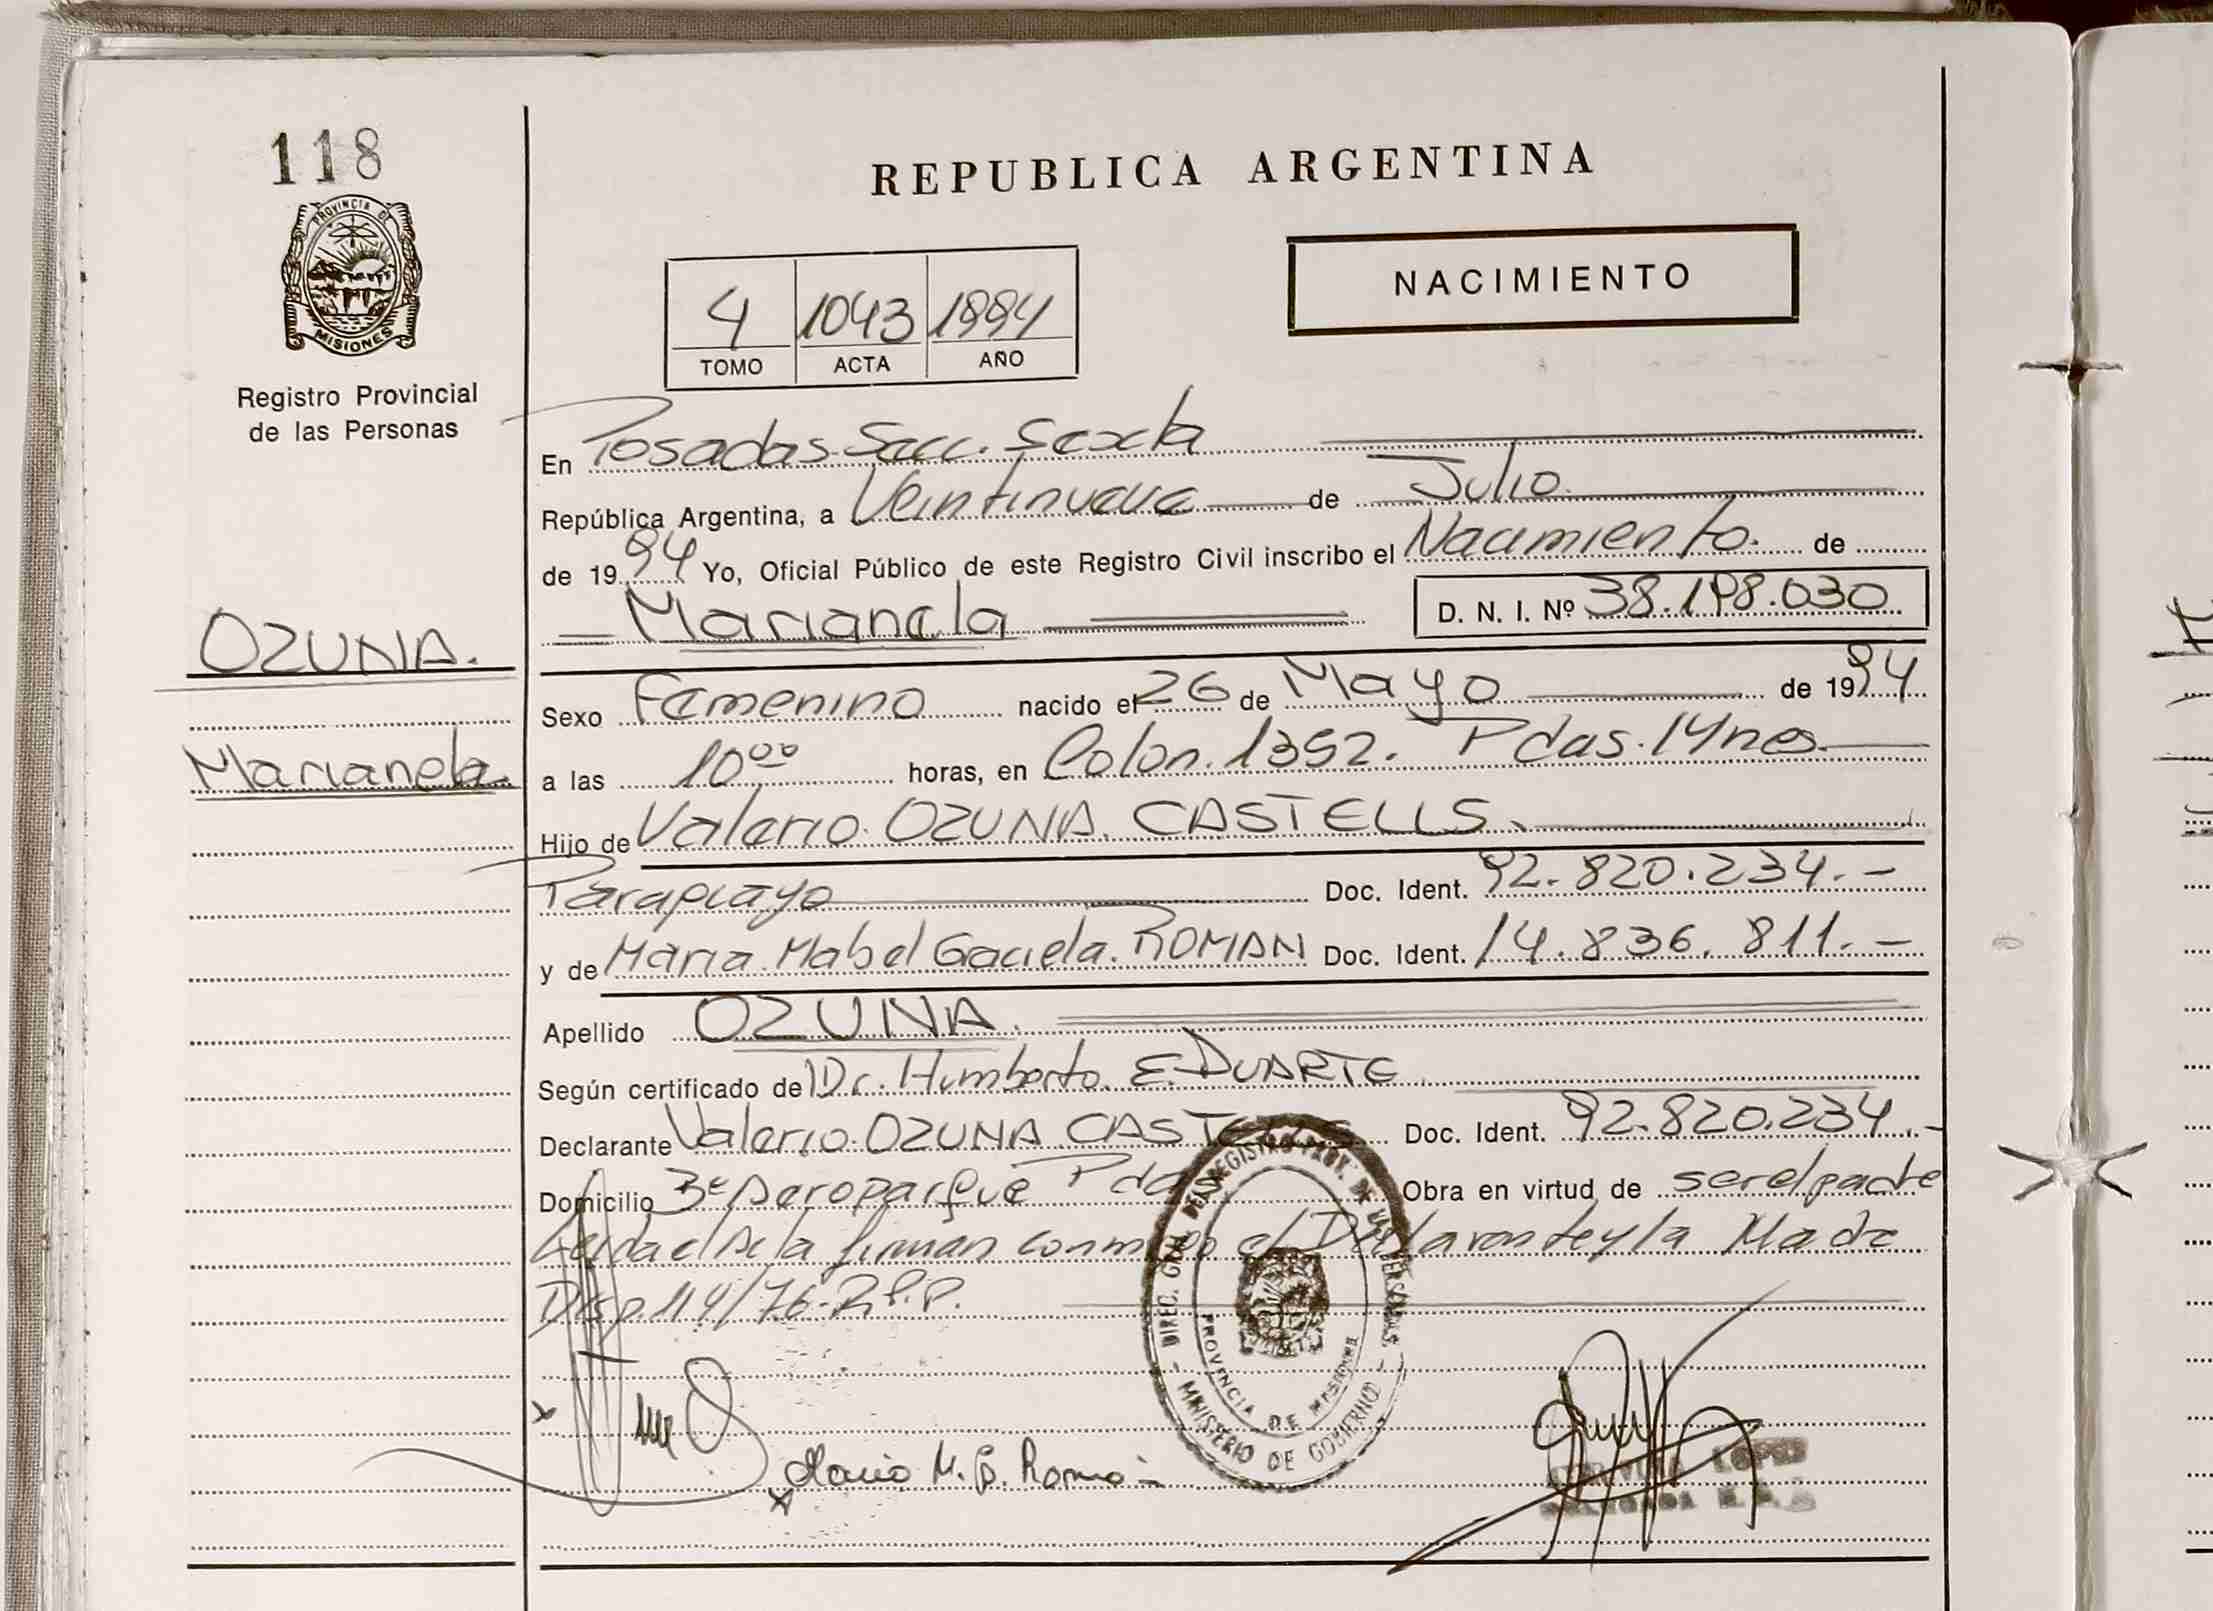 118
PROVINCIA DE
MISIONES
Registro Provincial
de las Personas
OZUNA.
Marianela.
REPUBLICA ARGENTINA
NACIMIENTO
4 1043 1994
TOMO ACTA AÑO
En Posadas Secc. Sexta
República Argentina, a Veintinueve de Julio.
de 1994 Yo, Oficial Público de este Registro Civil inscribo el Nacimiento. de
Marianela D. N. I. Nº 38.198.030
Sexo Femenino nacido el 26 de Mayo de 1994
a las 10 00 horas, en Colon. 1352. Pdas. Mnes.
Hijo de Valerio OZUNA CASTELLS.
Paraguayo Doc. Ident. 92.820.234.-
y de Maria Mabel Graciela ROMAN Doc. Ident. 14.836.811.-
Apellido OZUNA.
Según certificado de Dr. Humberto E. DUARTE
Declarante Valerio OZUNA CASTELLS Doc. Ident. 92.820.234.-
Domicilio Aeroparque Pdas Obra en virtud de ser el padre
Leida el Acta firman conmigo el Declarante y la Madre
Disp. 114/76-R.P.P.
DIREC. GRAL. DEL REGISTRO PROV. DE LAS PERSONAS
PROVINCIA DE MISIONES
MINISTERIO DE GOBIERNO
Maria M. G. Roman
LOPEZ